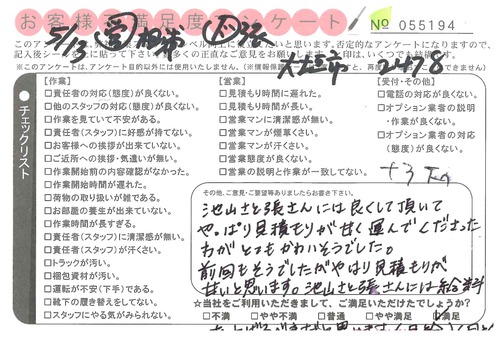 お客様満足度アンケート
No 055194
5/13
2478
このアンケートは
【作業】
□責任者の対応(態度)が良くない。
□他のスタッフの対応(態度)が良くない。
□作業を見ていて不安がある。
□責任者(スタッフ)に好感が持てない。
□お客様への挨拶が出来ていない。
□ご近所への挨拶・気遣いが無い。
□作業開始前の内容確認がなかった。
□作業開始時間が遅れた。
□荷物の取り扱いが雑である。
□お部屋の養生が出来ていない。
□作業時間が長すぎる。
□責任者(スタッフ)に清潔感が無い。
□責任者(スタッフ)が汗くさい。
□トラックが汚い。
□梱包資材が汚い。
□運転が不安(下手)である。
□靴下の履き替えをしてない。
□スタッフにやる気がみられない。
【営業】
□見積もり時間に遅れた。
□見積もり時間が長い。
□営業マンに清潔感が無い。
□営業マンが煙草くさい。
□営業マンが汗くさい。
□営業態度が良くない。
□営業の説明と作業が一致してない。
【受付・その他】
□電話の対応が良くない。
□オプション業者の説明
・作業が良くない。
□オプション業者の対応
(態度)が良くない。
チェックリスト
その他、ご意見・ご要望等ありましたらお書き下さい。
池山さと張さんには良くして頂いて
やっぱり見積もりが甘く運んでくださった
方がとてもかわいそうでした。
前回もそうでしたがやはり見積もりが
甘いと思います。池山さと張さんには
☆当社をご利用いただきまして、ご満足いただけたでしょうか?
□不満 □やや不満 □普通 □やや満足 □満足